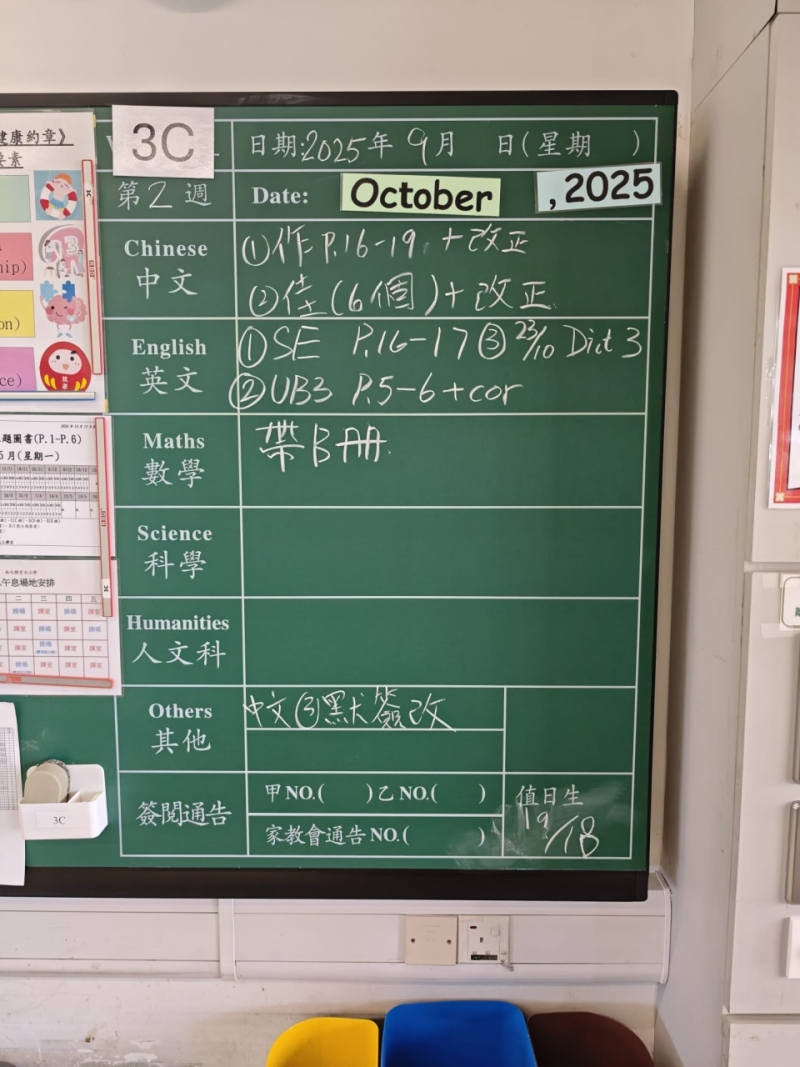 健康約章》
要素
3C
日期:2025年9月 日(星期 )
第2週
Date: October , 2025
Chinese
中文
①作P.16-19 +改正
②佳(6個)+改正
English
英文
①SE P.16-17 ③23/10 Dict 3
②UB3 P.5-6+cor
Maths
數學
帶B冊
Science
科學
Humanities
人文科
Others
其他
中文③默簽改
簽閱通告
甲NO.( )乙NO.( )
家教會通告NO.( )
值日生
19/18
題圖書(P.1-P.6)
月(星期一)
午息場地安排
二 三 四 五
3C